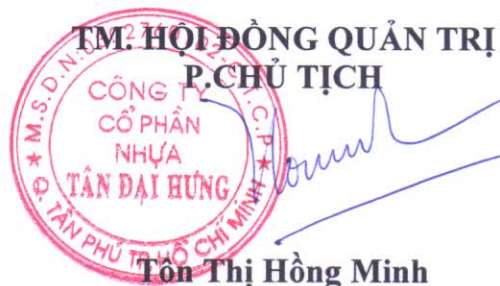 TM. HỘI ĐỒNG QUẢN TRỊ
P.CHỦ TỊCH
CÔNG TY
CỔ PHẦN
NHỰA
TÂN ĐẠI HƯNG
Q. TÂN PHÚ TP HỒ CHÍ MINH
Tôn Thị Hồng Minh